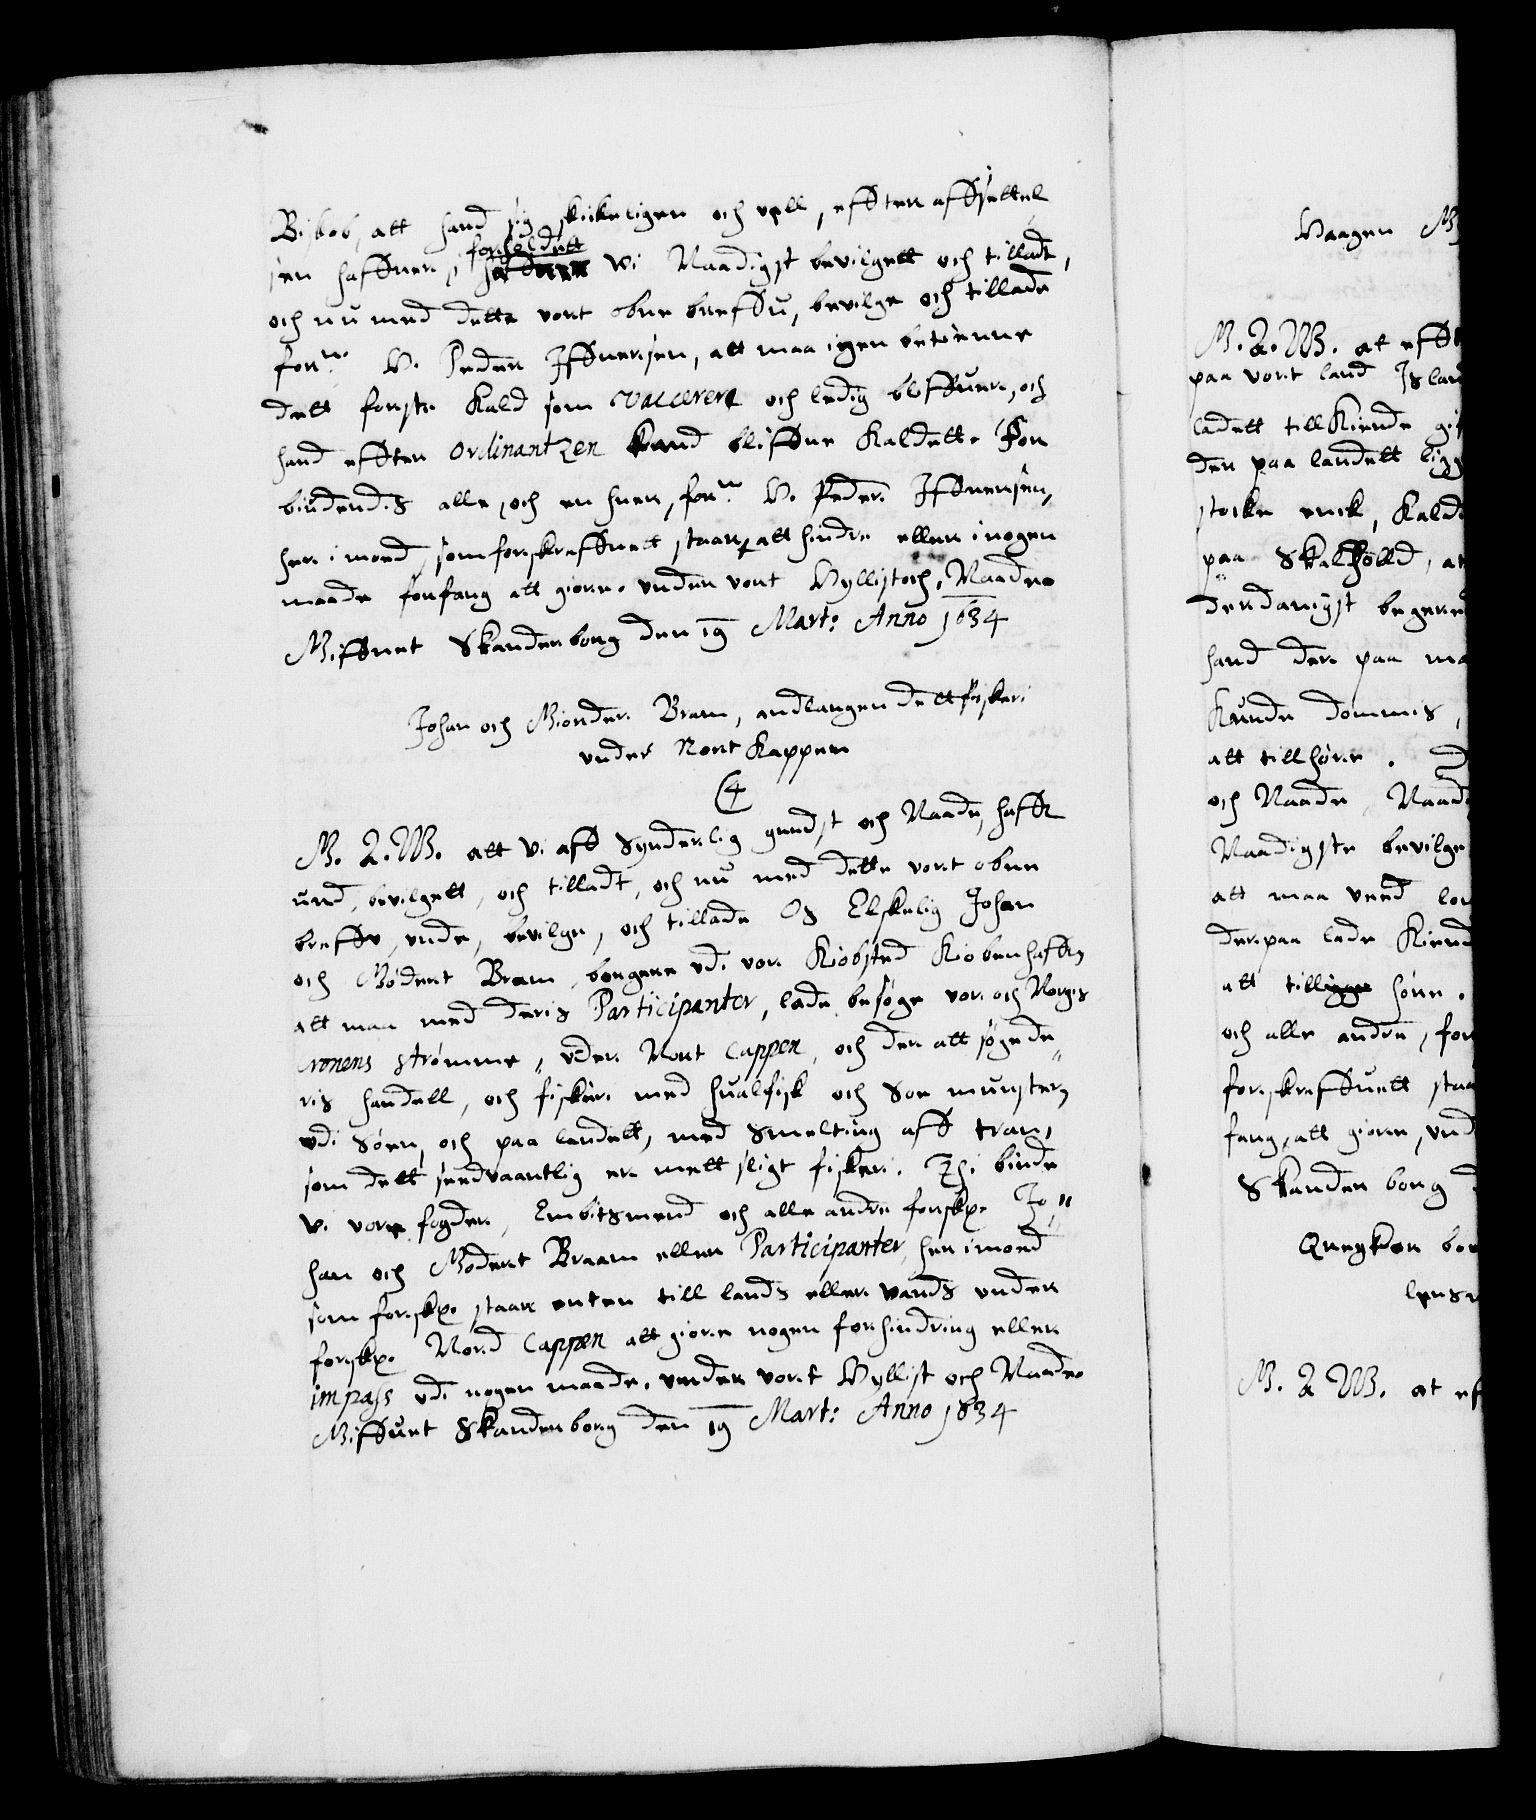 Biskob, att hand sig skikeligen och vell, effter affsettel
sen haffuer, forholdett Wi Naadigst bevilgett och tilladt,
och nu med dette vort obne breffu, bevilge och tillade
forne. H. Peder Iffuersen, att maa igen betienne
dett forste Kald som vaccerer och ledig bliffuer, och
hand effter ordinantzen kand bliffue kaldett. For
biudendis alle, och en huer, forne H. Peder Iffuersen,
her imod, som forskreffuett staar, att hindre eller i nogen
maade forfang att giøre. Under vort Hyllist och Naade
Giffuet Skanderborg den 19 Marti Anno 1634
Johan och Giordert Bram, andlangendett fiskeri
under Nort Kappen
4
G. A. W. att Vi aff Synderlig gundst och Naade, haffr
und, bevilgett, och tilladt, och nu med dette vort obne
breffu, unde, bevilge, och tillade Os Elskelig Johan
och Gødert Bram, borgere udi vor Kiøbsted Kiøbenhaffn
att maa med deris Participanter, lade besøge vor och Norgis
Cronens strømme, under Nort Cappen, och der att søge de
ris handell, och fiskeri med hualfisk och Soe munster,
udi Søen, och paa landett, med Smelting aff tran,
som dett sedvaantlig er mett sligt fiskeri. Thi biude
Vi vore fogder, Embitsmend och alle andre forskr. Jo
han och Gødert Braam eller Participanter, her imod
som forskr. staar enten till lands eller vands under
forskr. Nord Cappen att giøre nogen forhindring eller
impass udi nogen maade, under vort Hyllist och Naade
Giffuet Skanderborg den 19 Marti Anno 1634
Haagen
G. A. W. at efft
paa vort land Islan
ladett till Kiende gif
der paa landett ligg
støcke enck, Kald
paa Skalholld, at
derdanigst begered
hand der paa ma
Kunde dommis,
att tillhøre.
och Naade, Naad
Naadigste bevilge
att maa ved lou
der paa lade Kiend
att tilligge høre.
och alle andre, for
forskreffuett staa
fang, att giøre, und
Skanderborg
bor
lens
G. A. W. at ef